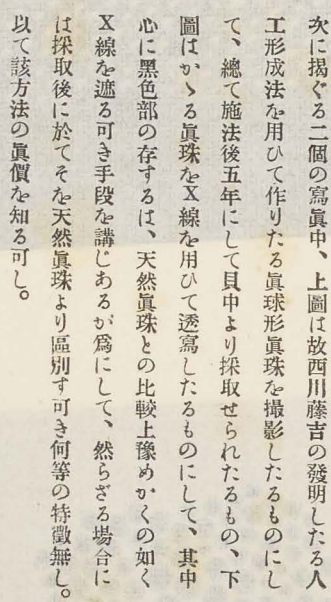 次に揭ぐる二個の寫眞中、上圖は故西川藤吉の發明したる人
工形成法を用ひて作りたる眞球形眞珠を撮影したるものにし
て、總て施法後五年にして貝中より採取せられたるもの、下
圖はかゝる眞珠をX線を用ひて透寫したるものにして、其中
心に黑色部の存するは、天然眞珠との比較上豫めかくの如く
X線を遮る可き手段を講じあるが爲にして、然らざる場合に
は採取後に於てそを天然眞珠より區別す可き何等の特徵無し。
以て該方法の眞價を知る可し。